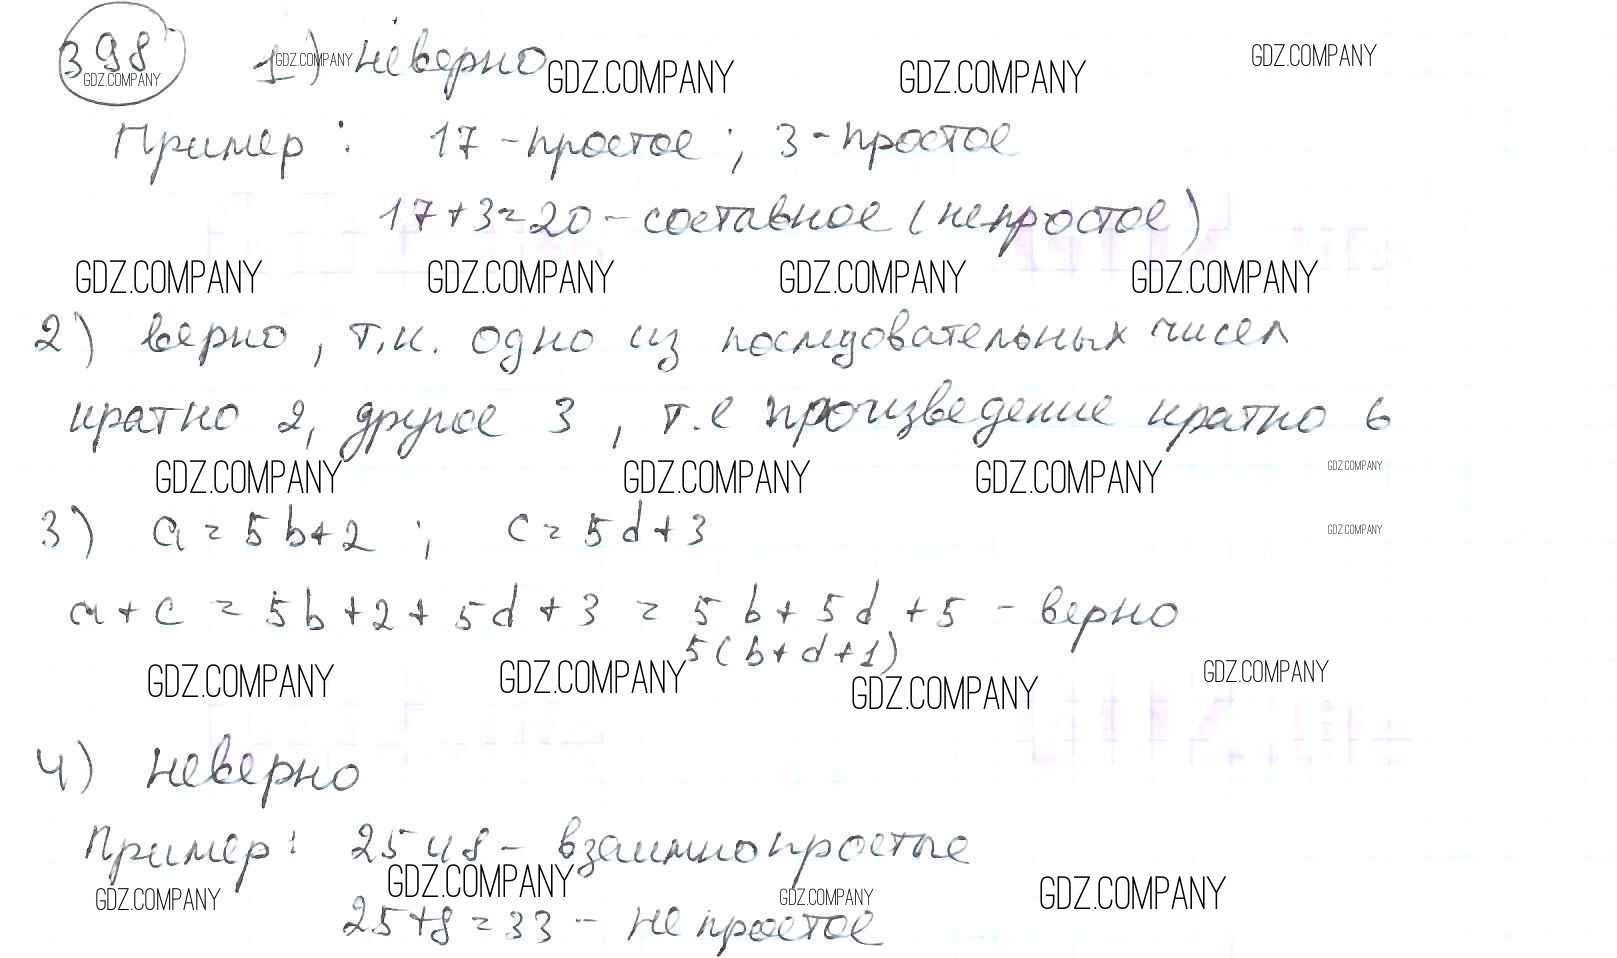 398 1) неверно GDZ.COMPANY GDZ.COMPANY GDZ.COMPANY
GDZ.COMPANY GDZ.COMPANY
Пример : 17 - простое ; 3 - простое
17+3=20 - составное (непростое)
GDZ.COMPANY GDZ.COMPANY GDZ.COMPANY GDZ.COMPANY
2) верно, т.к. одно из последовательных чисел
кратно 2, другое 3, т.е произведение кратно 6
GDZ.COMPANY GDZ.COMPANY GDZ.COMPANY GDZ.COMPANY
3) a = 5b+2 ; c = 5d+3 GDZ.COMPANY
a + c = 5b+2+5d+3 = 5b+5d+5 - верно
5(b+d+1)
GDZ.COMPANY GDZ.COMPANY GDZ.COMPANY GDZ.COMPANY
4) неверно
Пример : 25 и 8 - взаимно простые
GDZ.COMPANY GDZ.COMPANY GDZ.COMPANY GDZ.COMPANY
25+8=33 - не простое